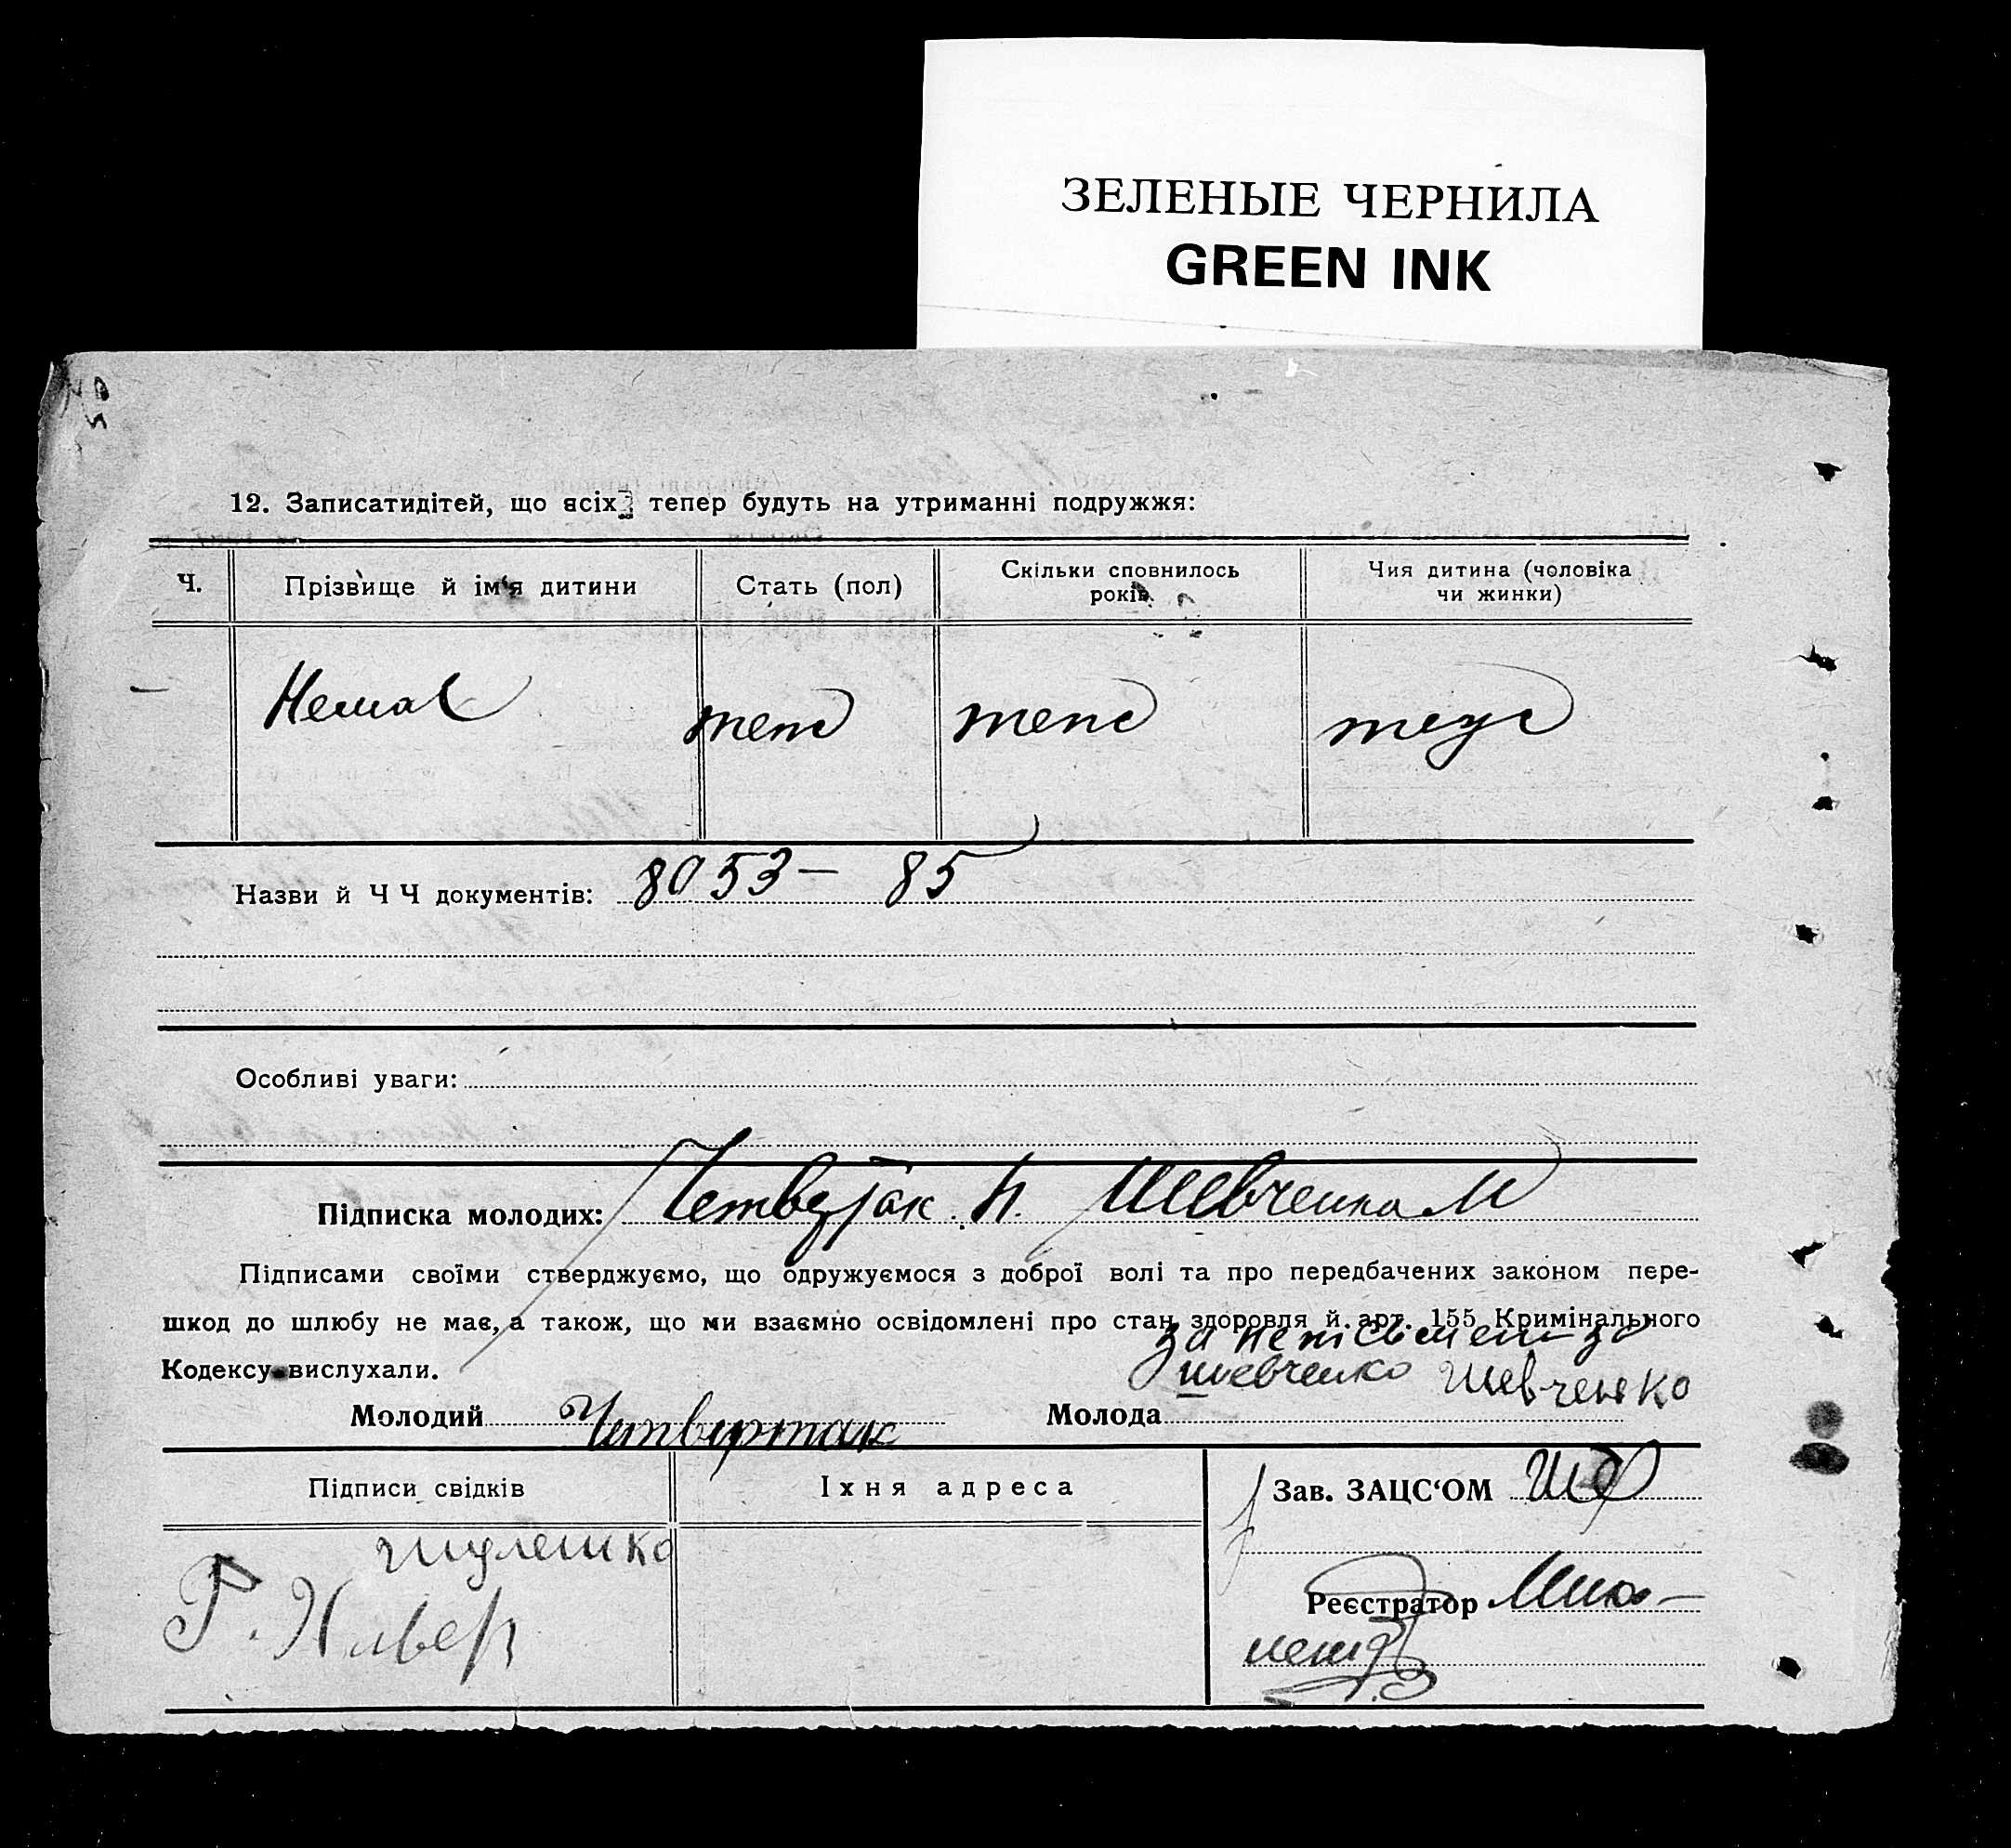 ЗЕЛЕНЫЕ ЧЕРНИЛА
GREEN INK
12. Записатидітей, що всіх тепер будуть на утриманні подружжя:
Ч. Прізвище й ім'я дитини Стать (пол) Скільки сповнилось років Чия дитина (чоловіка чи жинки)
— Немає
Назви й Ч Ч документів: 8053 — 85
Особливі уваги:
Підписка молодих: Четвертак Н. Шевченка М
Підписами своїми стверджуємо, що одружуємося з доброї волі та про передбачених законом пере-
шкод до шлюбу не має, а також, що ми взаємно освідомлені про стан здоровля й арт. 155 Кримінального
Кодексу вислухали.
за
шевченко Шевченко
Молодий Четвертак Молода
Підписи свідків Їхня адреса Зав. ЗАЦС‘ОМ
Шулешко
Реєстратор
Р.